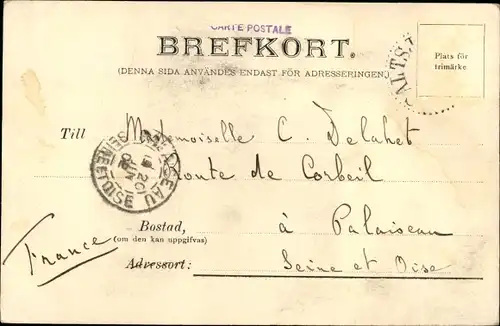 CARTE POSTALE
BREFKORT.
(DENNA SIDA ANVÄNDES ENDAST FÖR ADRESSERINGEN.)
Plats för
frimärke
Till Mademoiselle C. Delahet
Route de Corbeil
PALAISEAU
20
JUIN
02
SEINE ET OISE
Bostad, à Palaiseau
(om den kan uppgifvas)
France
Adressort: Seine et Oise